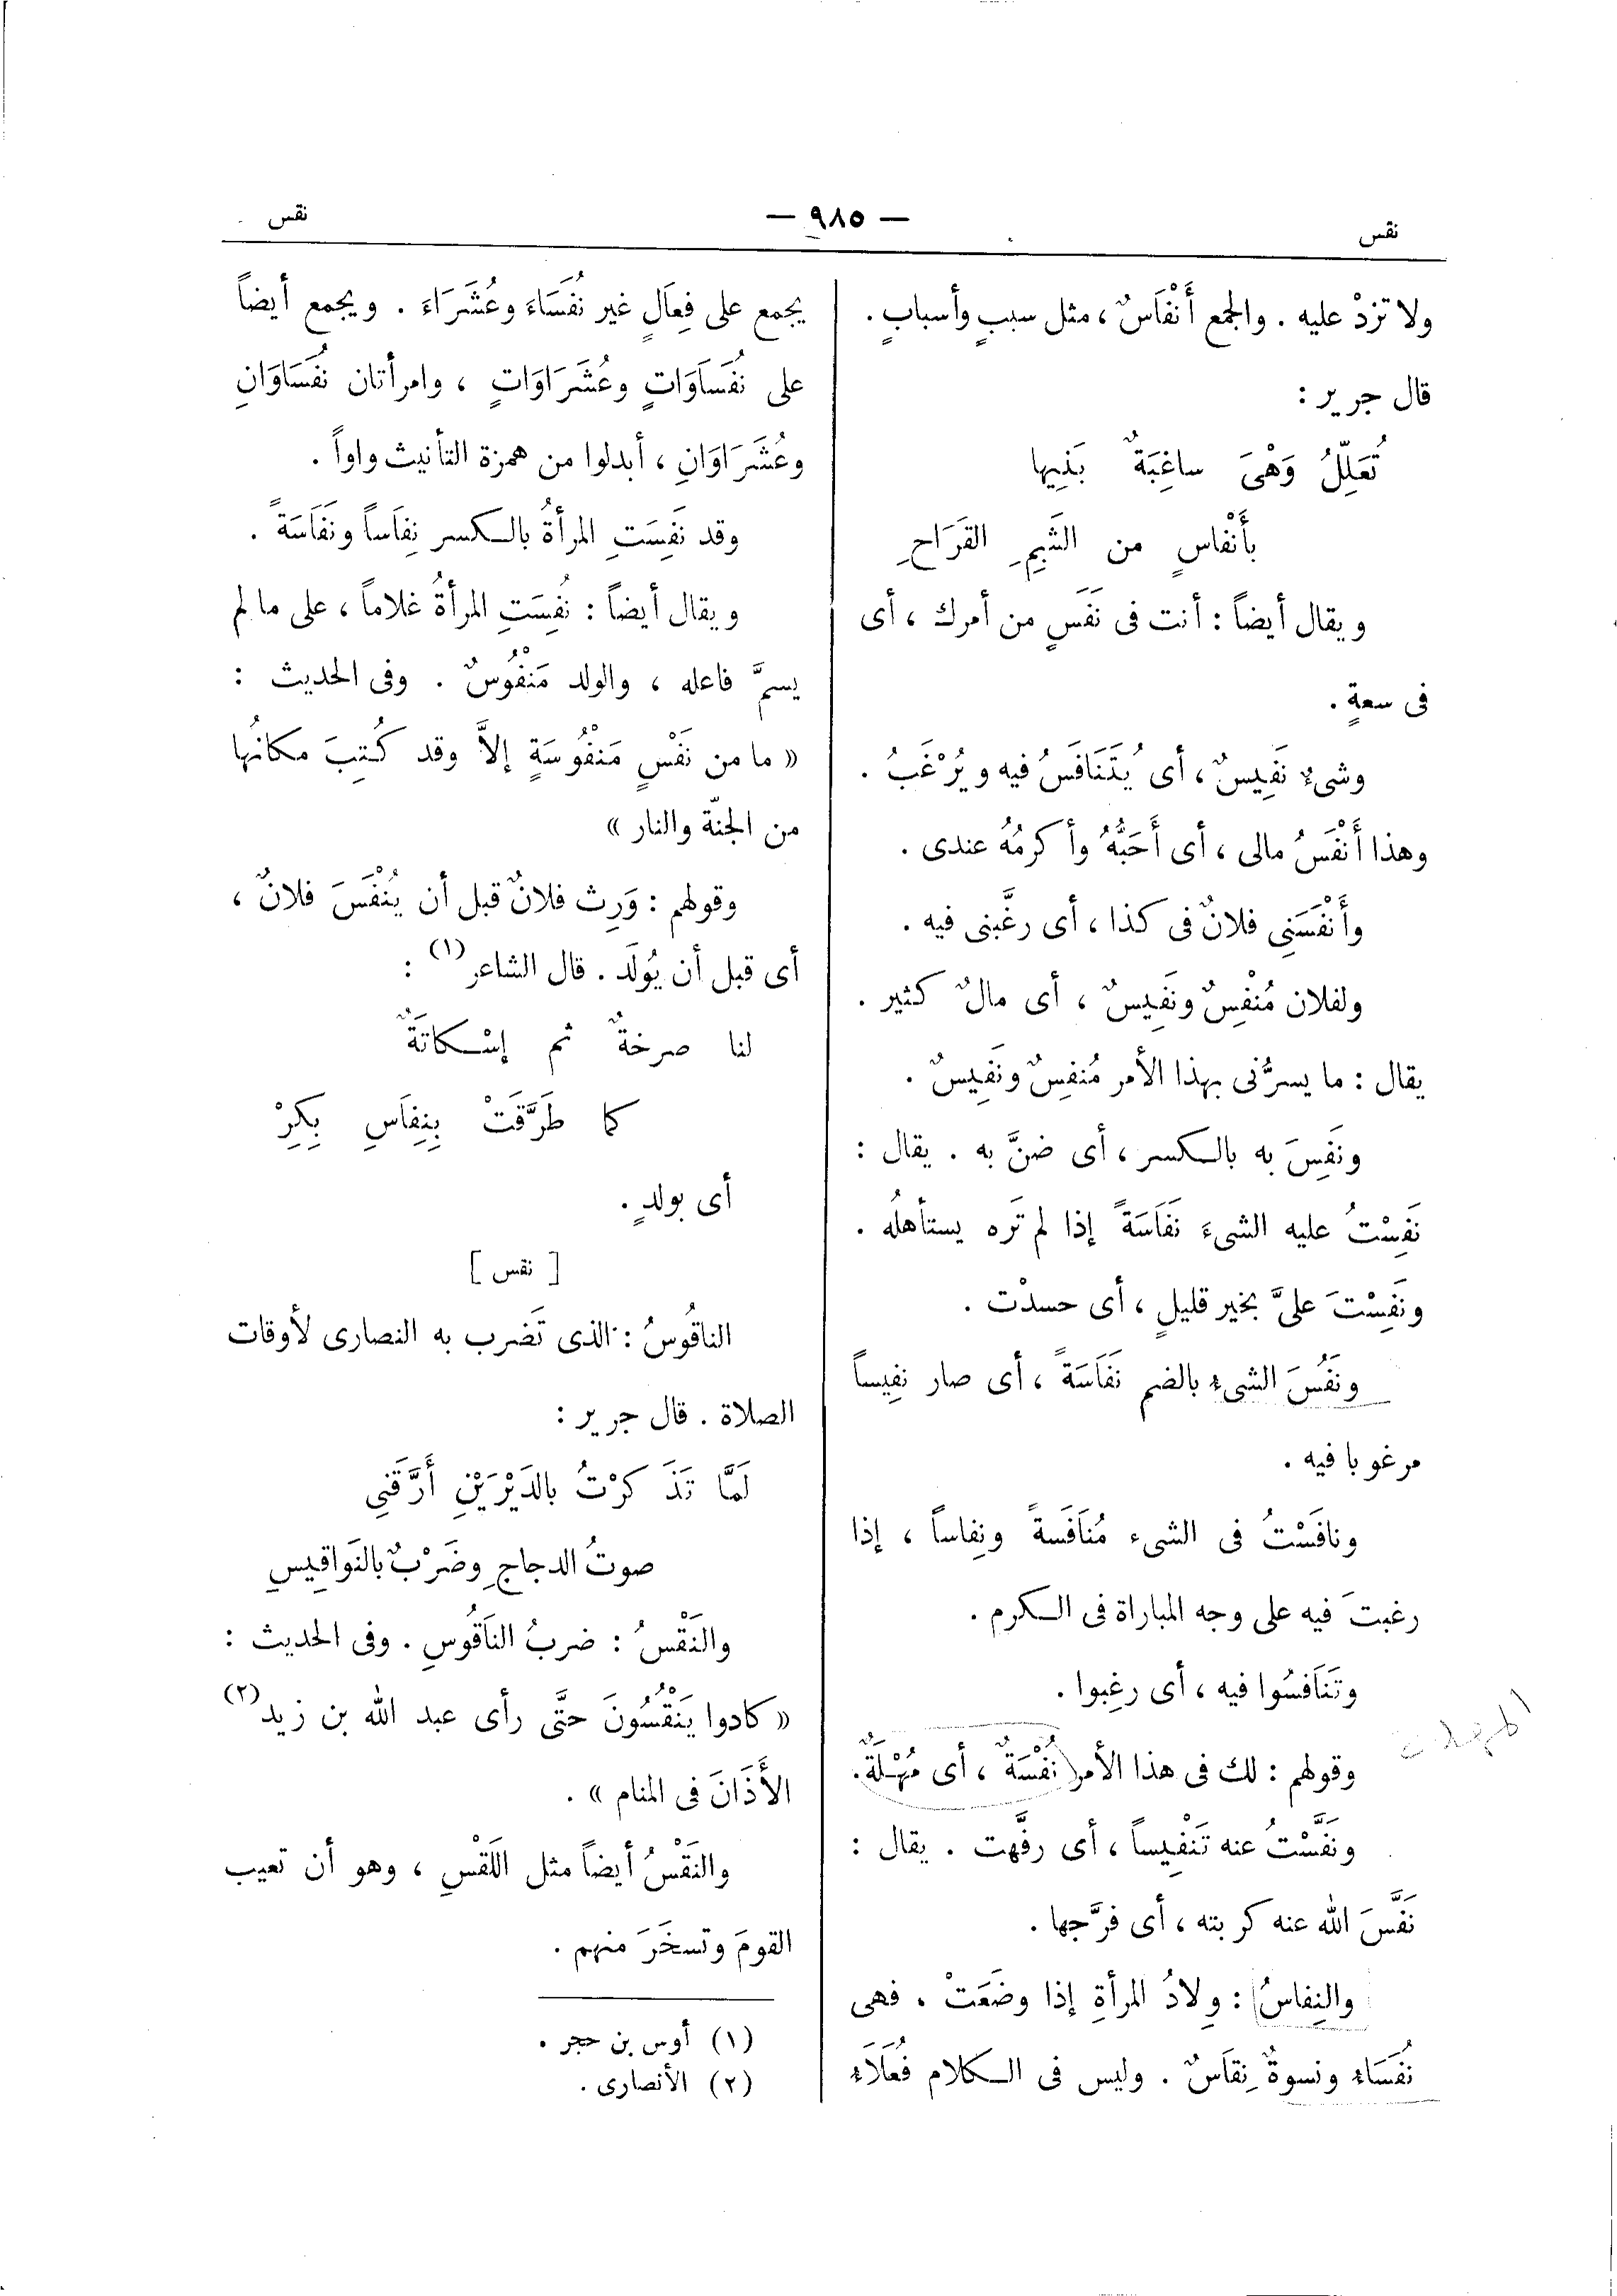 نقس
— ٩٨٥ —
نقس
ولا تزدْ عليه . والجمع أَنْفَاسٌ ، مثل سببٍ وأسبابٍ .
قال جرير :
تُعَلِّلُ وَهْىَ ساغِبَةٌ بَنِيها
بأَنْفاسٍ من الشَبِمِ القَرَاحِ
ويقال أيضاً : أنت فى نَفَسٍ من أمرك ، أى
فى سعةٍ .
وشىءٌ نَفِيسٌ ، أى يُتَنَافَسُ فيه ويُرْغَبُ .
وهذا أَنْفَسُ مالى ، أى أَحَبُّهُ وأكرمُهُ عندى .
وأَنْفَسَنِى فلانٌ فى كذا ، أى رغَّبنى فيه .
ولفلان مُنْفِسٌ ونَفِيسٌ ، أى مالٌ كثير .
يقال : ما يسرُّنى بهذا الأمر مُنفِسٌ ونَفِيسٌ .
ونَفِسَ به بالكسر ، أى ضنَّ به . يقال :
نَفِسْتُ عليه الشىءَ نَفَاسَةً إذا لم تَره يستأهلُه .
ونَفِسْتَ علىَّ بخير قليلٍ ، أى حسدْت .
ونَفُسَ الشىء بالضم نَفَاسَةً ، أى صار نفِيساً
مرغوبا فيه .
ونافَسْتُ فى الشىء مُنَافَسةً ونِفاساً ، إذا
رغبتَ فيه على وجه المباراة فى الكرم .
وتَنَافسُوا فيه ، أى رغِبوا .
وقولهم : لك فى هذا الأمر نُفْسَةٌ ، أى مُهْلَةٌ .
ونَفَّسْتُ عنه تَنْفِيساً ، أى رفَّهت . يقال :
نَفَّسَ الله عنه كربته ، أى فرَّجها .
والنِفاسُ : وِلادُ المرأةِ إذا وضَعَتْ . فهى
نُفَسَاء ونسوةٌ نِفَاسٌ . وليس فى الكلام فُعَلَاء
يجمع على فِعَالٍ غير نُفَسَاءَ وعُشَرَاءَ . ويجمع أيضاً
على نُفَسَاوَاتٍ وعُشَرَاوَاتٍ ، وامرأتان نُفَسَاوَانِ
وعُشَرَاوَانِ ، أبدلوا من همزة التأنيث واواً .
وقد نَفِسَتِ المرأةُ بالكسر نِفَاساً ونَفَاسَةً .
ويقال أيضاً : نُفِسَتِ المرأةُ غلاماً ، على ما لم
يسمَّ فاعله ، والولد مَنفُوسٌ . وفى الحديث :
« ما من نَفْسٍ مَنفُوسَةٍ إلاَّ وقد كُتِبَ مكانُها
من الجنّة والنار »
وقولهم : وَرِث فلانٌ قبل أن يُنْفَسَ فلانٌ ،
أى قبل أن يُولَد . قال الشاعر (١) :
لنا صرخةٌ ثم إسْكاتَةٌ
كما طَرَّقَتْ بِنِفَاسٍ بِكِرْ
أى بولدٍ .
[ نقس ]
الناقُوسُ : الذى تَضرب به النصارى لأوقات
الصلاة . قال جرير :
لَمَّا تَذَكرْتُ بالدَيْرَيْنِ أَرَّقَنِى
صوتُ الدجاجِ وضَرْبٌ بالنَواقِيسِ
والنَقْسُ : ضربُ النَاقُوسِ . وفى الحديث :
« كادوا يَنْقُسُونَ حتَّى رأى عبد الله بن زيد (٢)
الأَذَانَ فى المنام » .
والنَقْسُ أيضاً مثل اللَقْسِ ، وهو أن تعيب
القومَ وتسخَرَ منهم .
(١) أوس بن حجر .
(٢) الأنصارى .